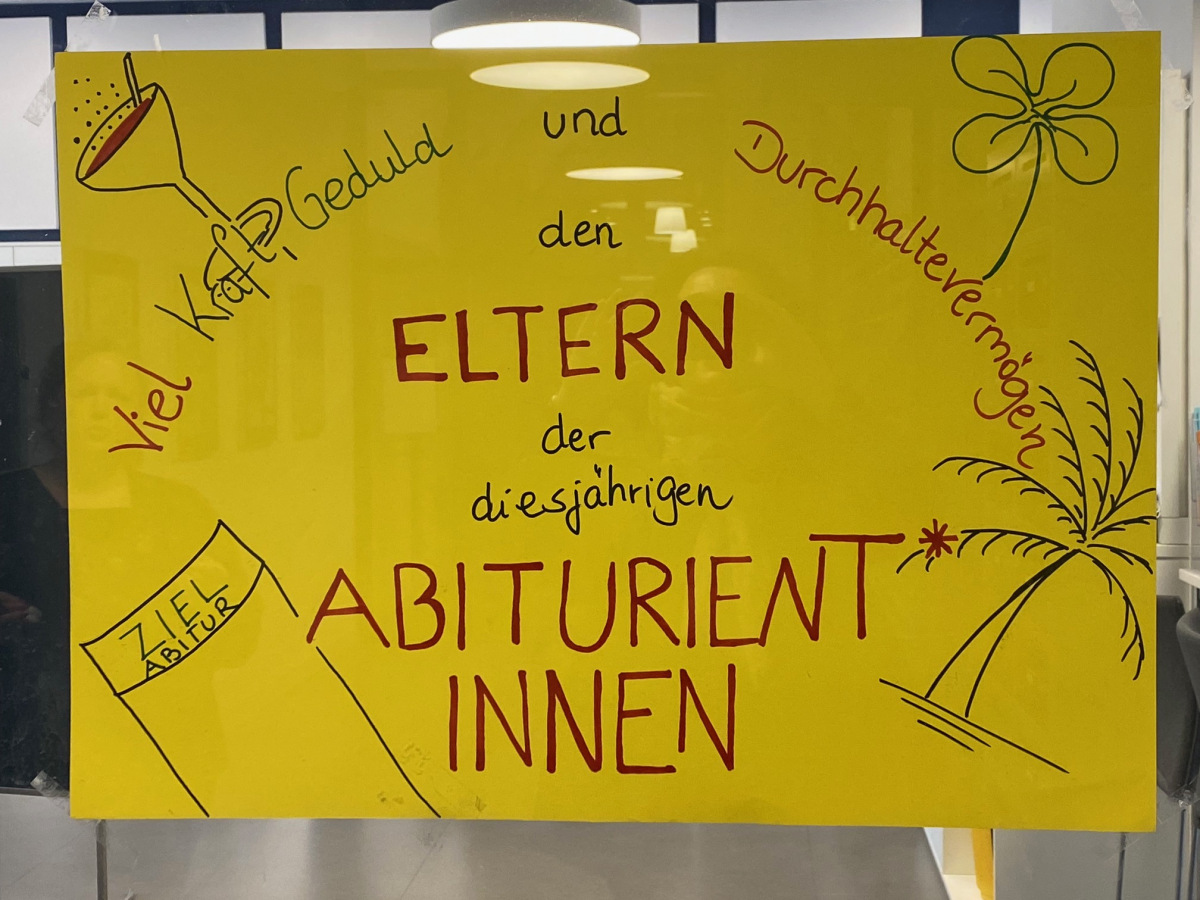 Viel Kraft, Geduld
und
Durchhaltevermögen
den
ELTERN
der
diesjährigen
ABITURIENT*
INNEN
ZIEL
ABITUR